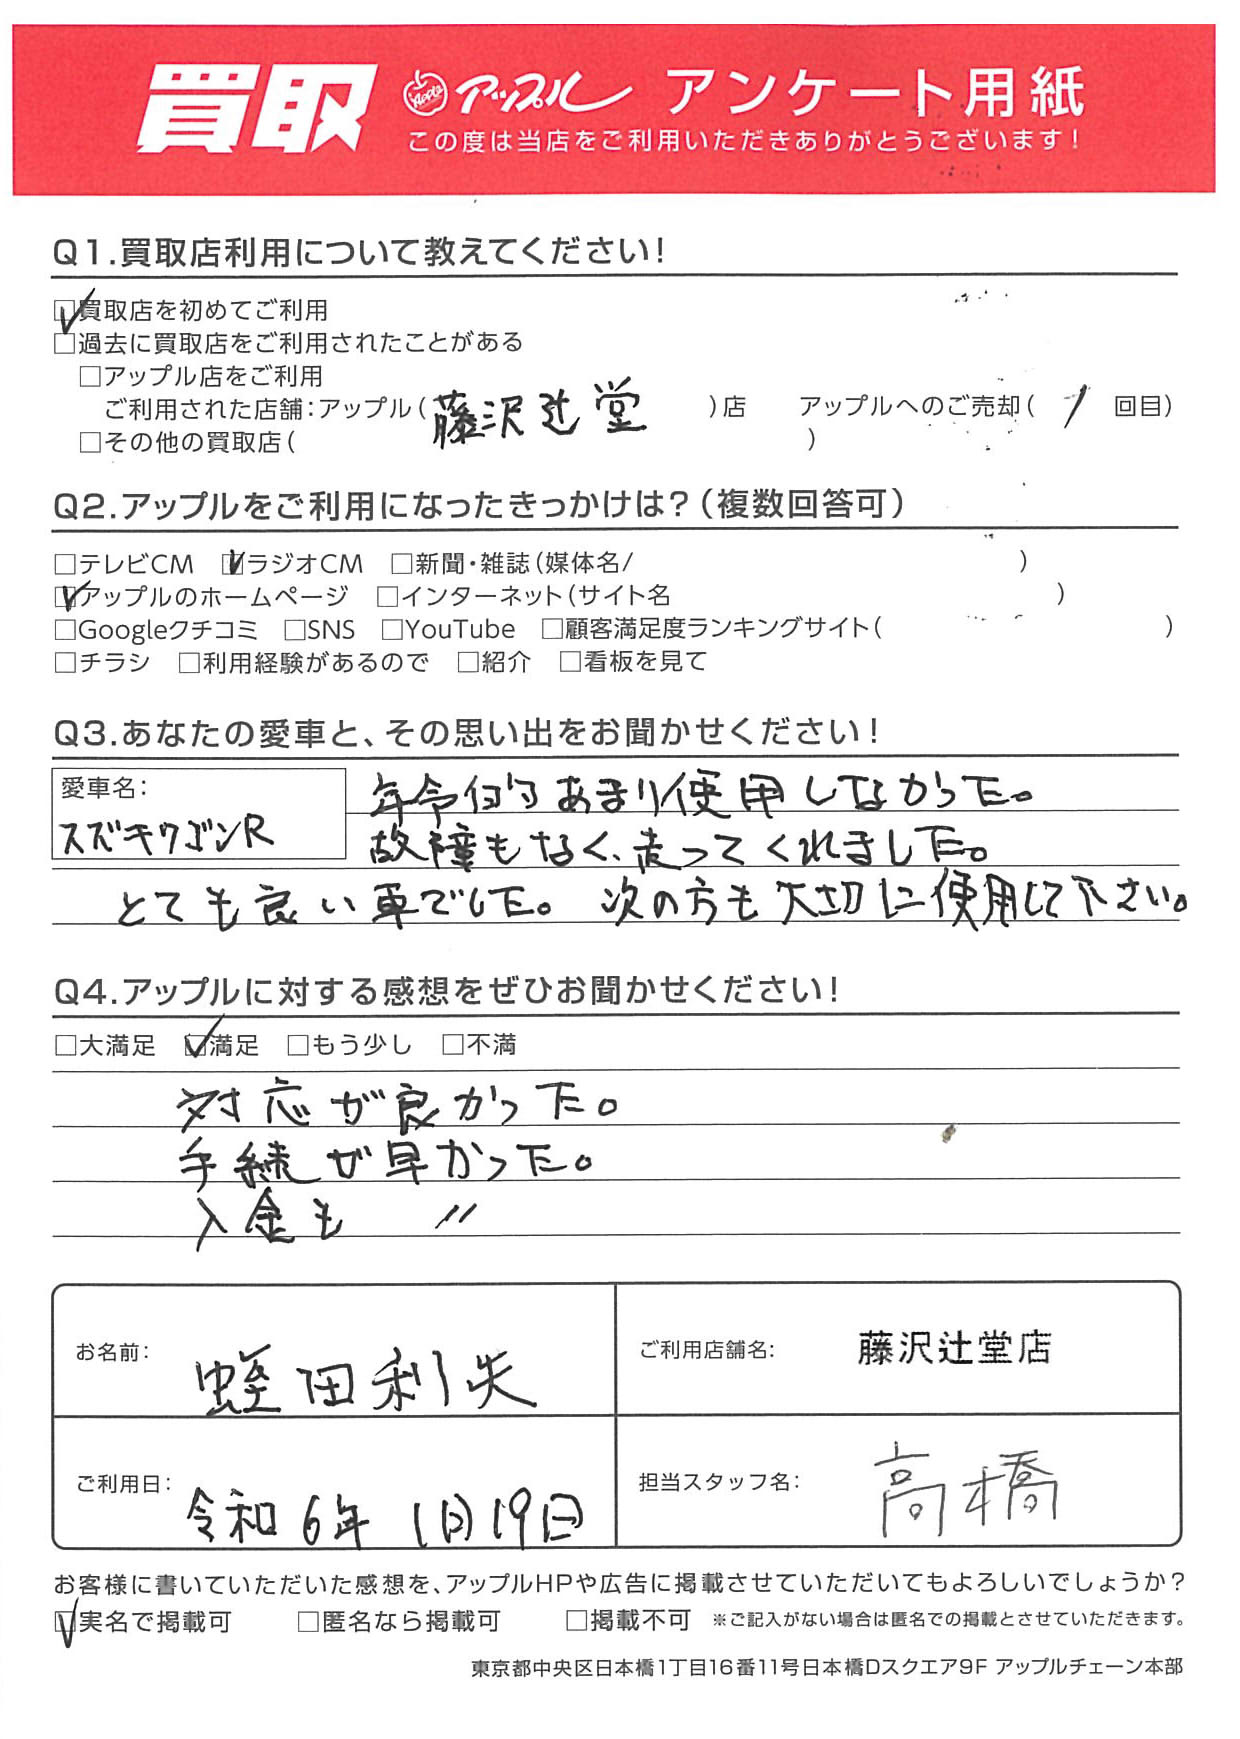 買取 アップル アンケート用紙
この度は当店をご利用いただきありがとうございます！
Q1.買取店利用について教えてください！
☑買取店を初めてご利用
□過去に買取店をご利用されたことがある
□アップル店をご利用
ご利用された店舗：アップル（藤沢辻堂）店 アップルへのご売却（1回目）
□その他の買取店（ ）
Q2.アップルをご利用になったきっかけは？（複数回答可）
□テレビCM ☑ラジオCM □新聞・雑誌（媒体名/ ）
☑アップルのホームページ □インターネット（サイト名 ）
□Googleクチコミ □SNS □YouTube □顧客満足度ランキングサイト（ ）
□チラシ □利用経験があるので □紹介 □看板を見て
Q3.あなたの愛車と、その思い出をお聞かせください！
愛車名：
スズキワゴンR
年令的あまり使用しなかった。
故障もなく、走ってくれました。
とても良い車でした。次の方も大切に使用して下さい。
Q4.アップルに対する感想をぜひお聞かせください！
□大満足 ☑満足 □もう少し □不満
対応が良かった。
手続が早かった。
入金も 〃
お名前： 蛭田利夫
ご利用店舗名： 藤沢辻堂店
ご利用日： 令和6年1月19日
担当スタッフ名： 高橋
お客様に書いていただいた感想を、アップルHPや広告に掲載させていただいてもよろしいでしょうか？
☑実名で掲載可 □匿名なら掲載可 □掲載不可 ※ご記入がない場合は匿名での掲載とさせていただきます。
東京都中央区日本橋1丁目16番11号日本橋Dスクエア9F アップルチェーン本部